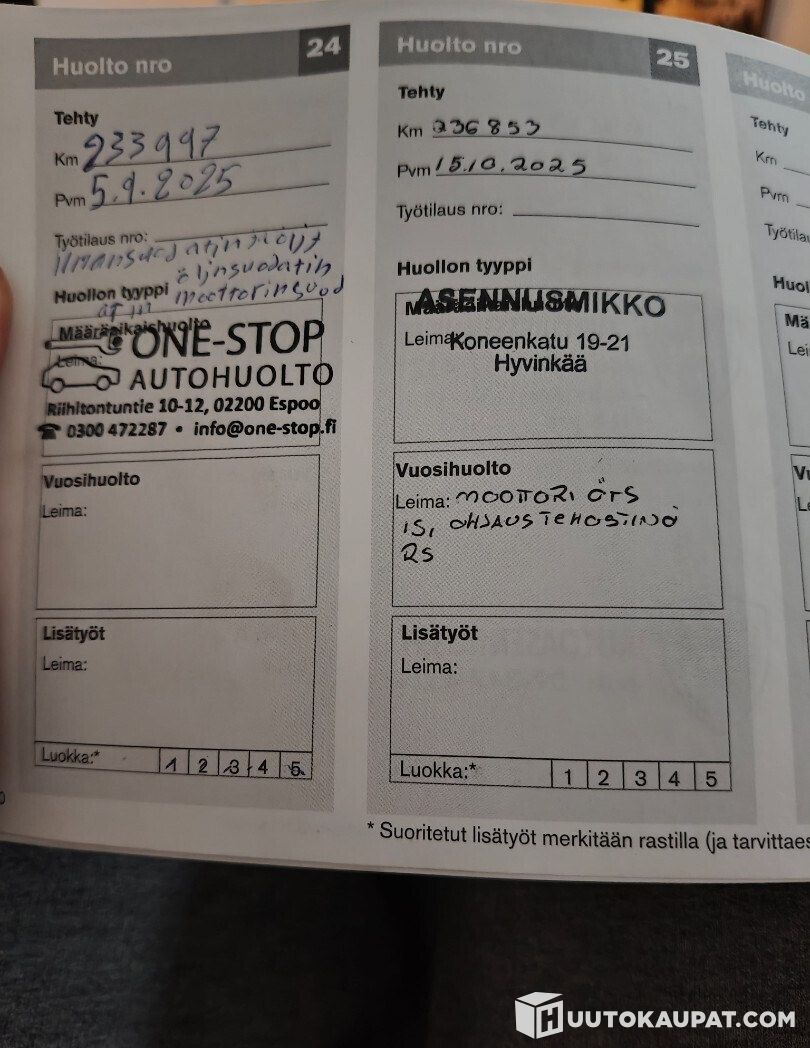 Huolto nro 24
Tehty
Km 233997
Pvm 5.9.2025
Työtilaus nro:
öljynsuodatin
Huollon tyyppi moottorinsuod
Määräaikaishuolto
Leima:
ONE-STOP
AUTOHUOLTO
Riihitontuntie 10-12, 02200 Espoo
0300 472287 • info@one-stop.fi
Vuosihuolto
Leima:
Lisätyöt
Leima:
Luokka:* 1 2 3 4 5
Huolto nro 25
Tehty
Km 236853
Pvm 15.10.2025
Työtilaus nro:
Huollon tyyppi
ASENNUSMIKKO
Leima:
Koneenkatu 19-21
Hyvinkää
Vuosihuolto
Leima: MOOTTORI
OHJAUSTEHOSTINÖ
Lisätyöt
Leima:
Luokka:* 1 2 3 4 5
* Suoritetut lisätyöt merkitään rastilla (ja tarvittaes
Huolto
Tehty
Km
Pvm
Työtila
Huol
Mä
Lei
HUUTOKAUPAT.COM